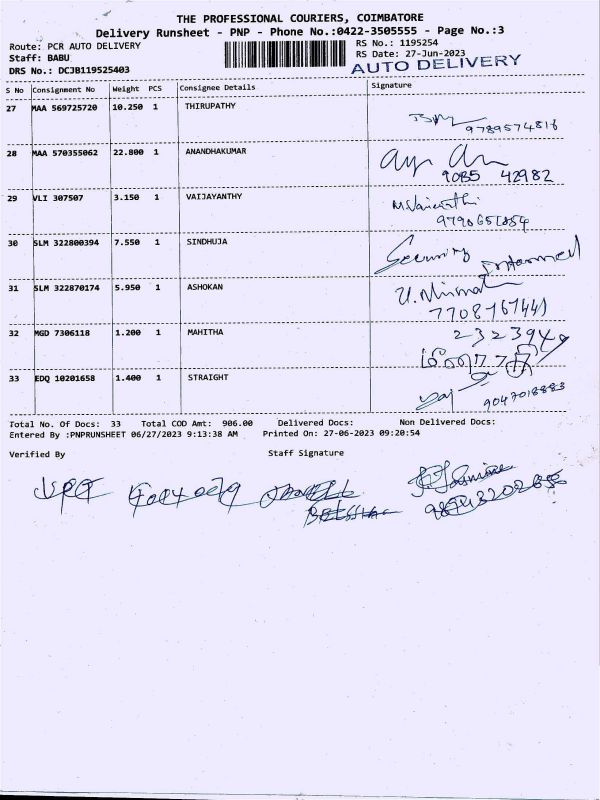 THE PROFESSIONAL COURIERS, COIMBATORE
Delivery Runsheet - PNP - Phone No.:0422-3505555 - Page No.:3
Route: PCR AUTO DELIVERY
RS No.: 1195254
Staff: BABU
RS Date: 27-Jun-2023
DRS No.: DCJB119525403
AUTO DELIVERY
S No Consignment No Weight PCS Consignee Details Signature
27 MAA 569725720 10.250 1 THIRUPATHY
9789574816
28 MAA 570355062 22.800 1 ANANDHAKUMAR
42982
29 VLI 307507 3.150 1 VAIJAYANTHY
30 SLM 322800394 7.550 1 SINDHUJA Security
31 SLM 322870174 5.950 1 ASHOKAN
32 MGD 7306118 1.200 1 MAHITHA
33 EDQ 10201658 1.400 1 STRAIGHT
9047018883
Total No. Of Docs: 33 Total COD Amt: 906.00 Delivered Docs: Non Delivered Docs:
Entered By :PNPRUNSHEET 06/27/2023 9:13:38 AM Printed On: 27-06-2023 09:20:54
Verified By Staff Signature